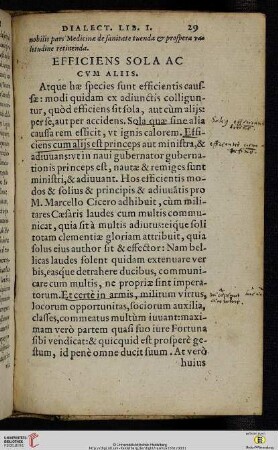 DIALECT. LIB. I. 29
nobilis pars Medicinæ de sanitate tuenda & prospera va-
letudine retinenda.
EFFICIENS SOLA AC
CVM ALIIS.
Atque hæ species sunt efficientis caus-
sæ: modi quidam ex adiunctis colligun-
tur, quòd efficiens sit sola, aut cùm alijs:
per se, aut per accidens. Sola quæ sine alia
caussa rem efficit, vt ignis calorem. Effi-
ciens cum alijs est princeps aut ministra, &
adiuuans: vt in naui gubernator guberna-
tionis princeps est, nautæ & remiges sunt
ministri, & adiuuant. Hos efficientis mo-
dos & solius & principis & adiuuātis pro
M. Marcello Cicero adhibuit, cùm mili-
tares Cæsaris laudes cum multis commu-
nicat, quia sit à multis adiutus: eique soli
totam clementiæ gloriam attribuit, quia
solus eius author sit & effector: Nam bel-
licas laudes solent quidam extenuare ver-
bis, easque detrahere ducibus, communi-
care cum multis, ne propriæ sint impera-
torum. Et certè in armis, militum virtus,
locorum opportunitas, sociorum auxilia,
classes, commeatus multùm iuuant: maxi-
mam verò partem quasi suo iure Fortuna
sibi vendicat: & quicquid est prosperè ge-
stum, id penè omne ducit suum. At verò
huius
© Universitätsbibliothek Heidelberg